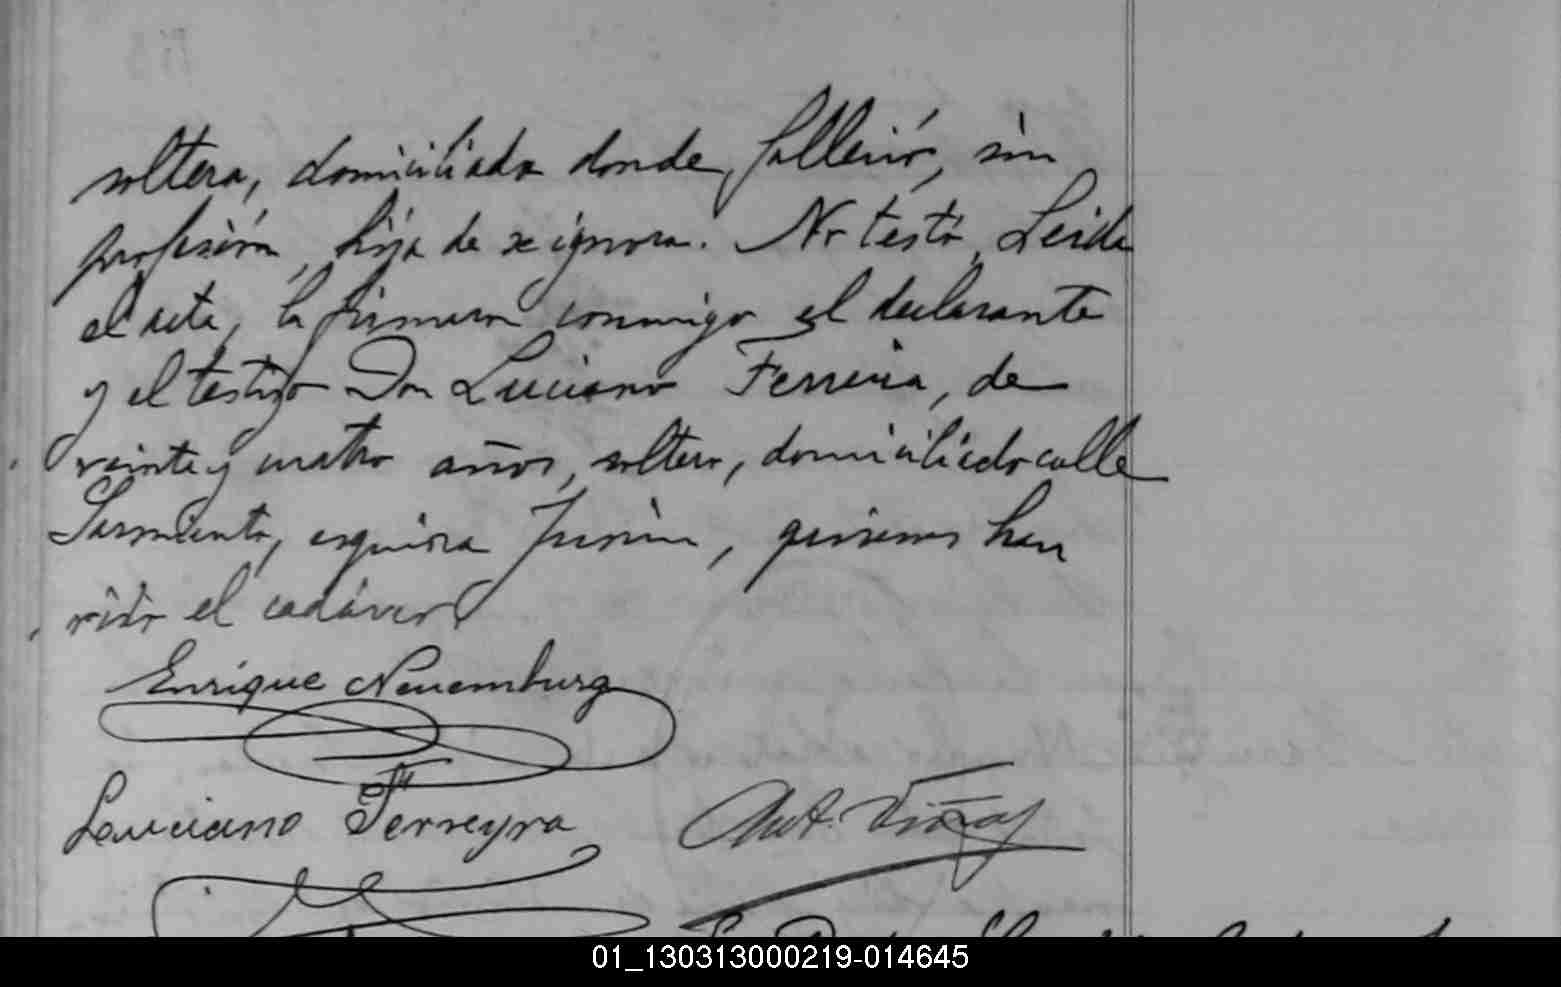 soltera, domiciliada donde falleció, sin
profesión, hija de se ignora. No testó. Leida
el acta, la firmaron conmigo el declarante
y el testigo Don Luciano Ferreira, de
veinte y cuatro años, soltero, domiciliado calle
Sarmiento, esquina Junin, quienes han
visto el cadáver
Enrique Neuemburg
Luciano Ferreyra
Ant. Viñas
01_130313000219-014645